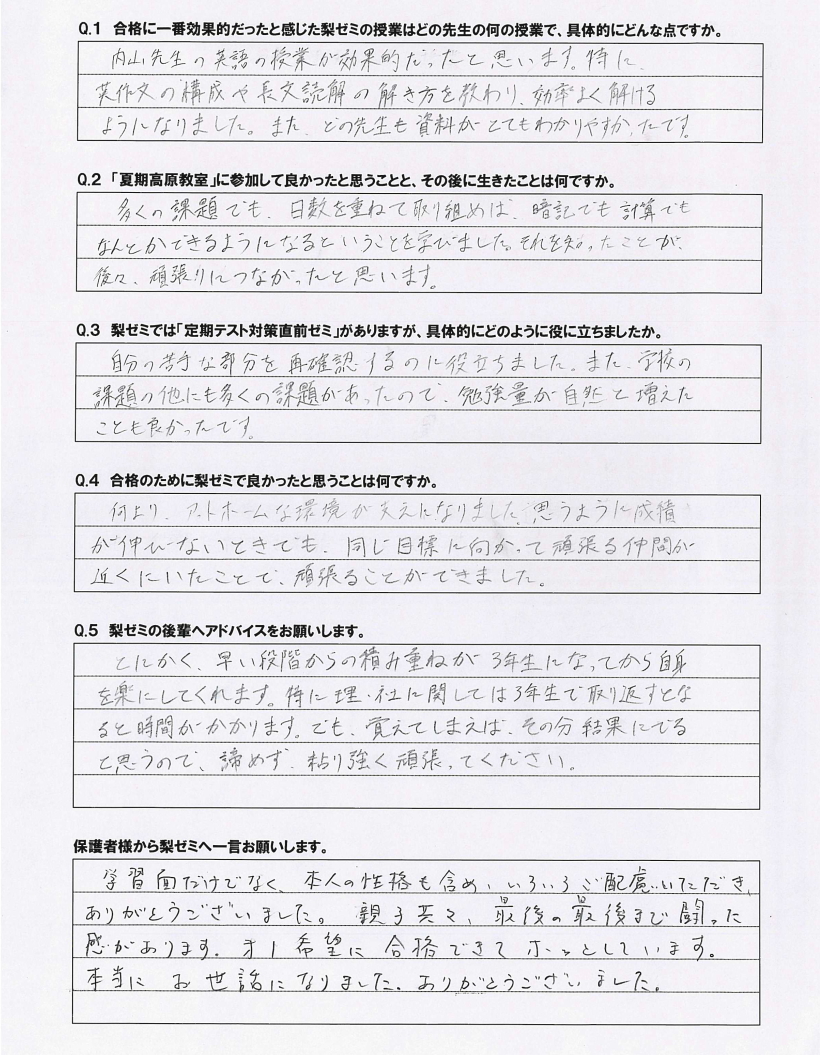 Q.1 合格に一番効果的だったと感じた梨ゼミの授業はどの先生の何の授業で、具体的にどんな点ですか。
内山先生の英語の授業が効果的だったと思います。特に、
英作文の構成や長文読解の解き方を教わり、効率よく解ける
ようになりました。また、どの先生も資料がとてもわかりやすかったです。
Q.2 「夏期高原教室」に参加して良かったと思うことと、その後に生きたことは何ですか。
多くの課題でも、日数を重ねて取り組めば、暗記でも計算でも
なんとかできるようになるということを学びました。それを知ったことが、
後々、頑張りにつながったと思います。
Q.3 梨ゼミでは「定期テスト対策直前ゼミ」がありますが、具体的にどのように役に立ちましたか。
自分の苦手な部分を再確認するのに役立ちました。また、学校の
課題の他にも多くの課題があったので、勉強量が自然と増えた
ことも良かったです。
Q.4 合格のために梨ゼミで良かったと思うことは何ですか。
何より、アットホームな環境が支えになりました。思うように成績
が伸びないときでも、同じ目標に向かって頑張る仲間が
近くにいたことで、頑張ることができました。
Q.5 梨ゼミの後輩へアドバイスをお願いします。
とにかく、早い段階からの積み重ねが3年生になってから自身
を楽にしてくれます。特に理・社に関しては3年生で取り返すとな
ると時間がかかります。でも、覚えてしまえば、その分結果にでる
と思うので、諦めず、粘り強く頑張ってください。
保護者様から梨ゼミへ一言お願いします。
学習面だけでなく、本人の性格も含め、いろいろご配慮いただき、
ありがとうございました。親子共々、最後の最後まで闘った
感があります。才1希望に合格できてホッとしています。
本当にお世話になりました。ありがとうございました。